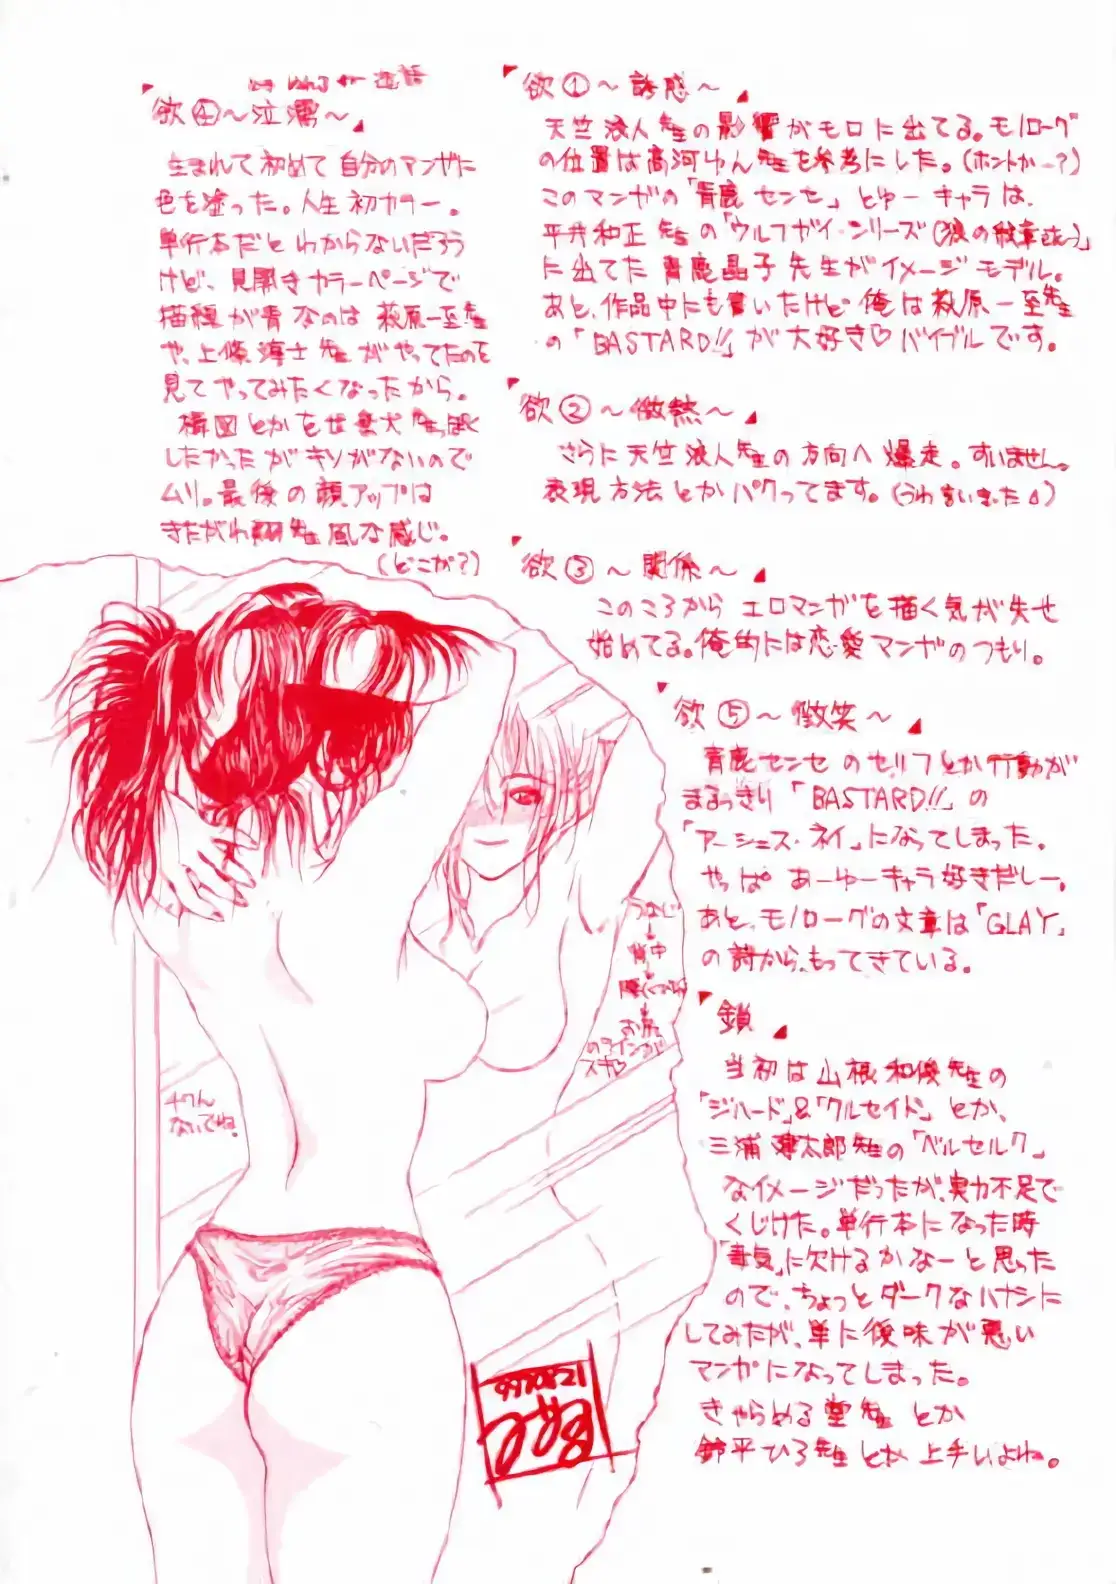 欲①～誘惑～
天竺浪人先生の影響がモロに出てる。モノローグ
の位置は高河ゆん先生を参考にした。(ホントかー?)
このマンガの「青鹿センセ」とゆーキャラは、
平井和正先生の「ウルフガイ・シリーズ(狼の紋章
に出てた青鹿晶子先生がイメージモデル。
あと、作品中にも書いたけど俺は萩原一至先生
の「BASTARD!!」が大好き♡バイブルです。
欲②～微熱～
さらに天竺浪人先生の方向へ爆走。すいません。
表現方法とかパクってます。(うわ言いきった
欲③～関係～
このころからエロマンガを描く気が失せ
始めてる。俺的には恋愛マンガのつもり。
欲④～泣濡～
生まれて初めて自分のマンガに
色を塗った。人生初カラー。
単行本だとわからないだろう
けど、見開きカラーページで
描線が青なのは萩原一至先生
や、上條淳士先生がやってたのを
見てやってみたくなったから。
構図とかを
したかったがキソがないので
ムリ。最後の顔アップは
きたがわ翔先生風な感じ。
(どこが?)
欲⑤～微笑～
青鹿センセのセリフとか行動が
まるっきり「BASTARD!!」の
「アーシェス・ネイ」になってしまった。
やっぱあーゆーキャラ好きだしー。
あと、モノローグの文章は「GLAY」
の詩から、もってきている。
鎖
当初は山根和俊先生の
「ジハード」&「クルセイド」とか、
三浦建太郎先生の「ベルセルク」
なイメージだったが、実力不足で
くじけた。単行本になった時
「毒気」に欠けるかなーと思った
ので、ちょっとダークなハナシに
してみたが、単に後味が悪い
マンガになってしまった。
きゃらめる堂先生とか
鈴平ひろ先生とか上手いよね。
うなじ
↓
背中
↓
腰(くびれ)
↓
お尻
のラインが
スキ♡
チクん
ないでね。
990821